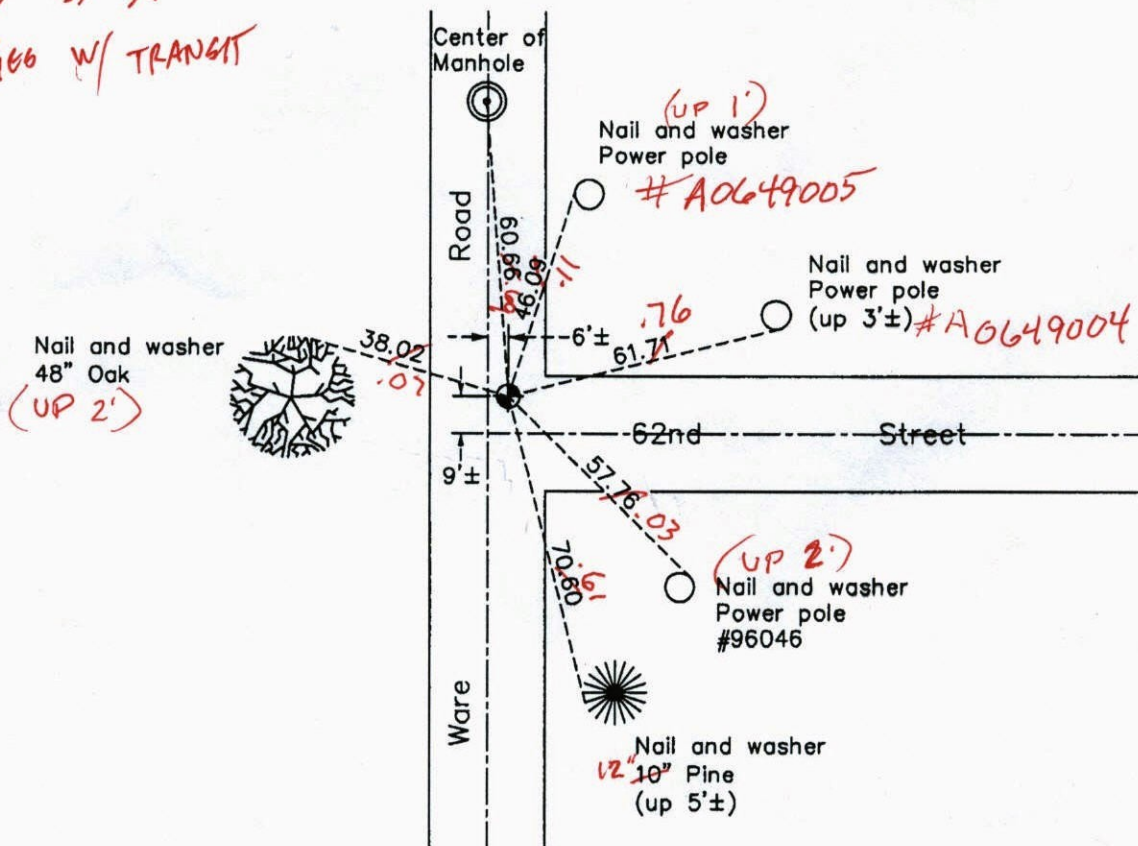 W/ TRANSIT
Center of
Manhole
(UP 1')
Nail and washer
Power pole
#A0649005
Road
99.09
46.09
.11
Nail and washer
Power pole
(up 3'±) #A0649004
.76
61.71
6'±
38.02
.07
Nail and washer
48" Oak
(UP 2')
62nd Street
9'±
57.76
.03
(UP 2')
Nail and washer
Power pole
#96046
70.60
.61
Ware
Nail and washer
12" 10" Pine
(up 5'±)